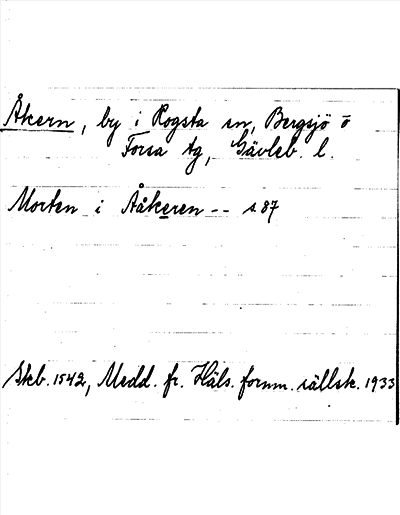 Åkern, by i Rogsta sn, Bergsjö o
Forsa tg, Gävleb. l.
Morten i Ååkeren -- s. 87
Skb. 1542, Medd. fr. Häls. fornm. sällsk. 1933